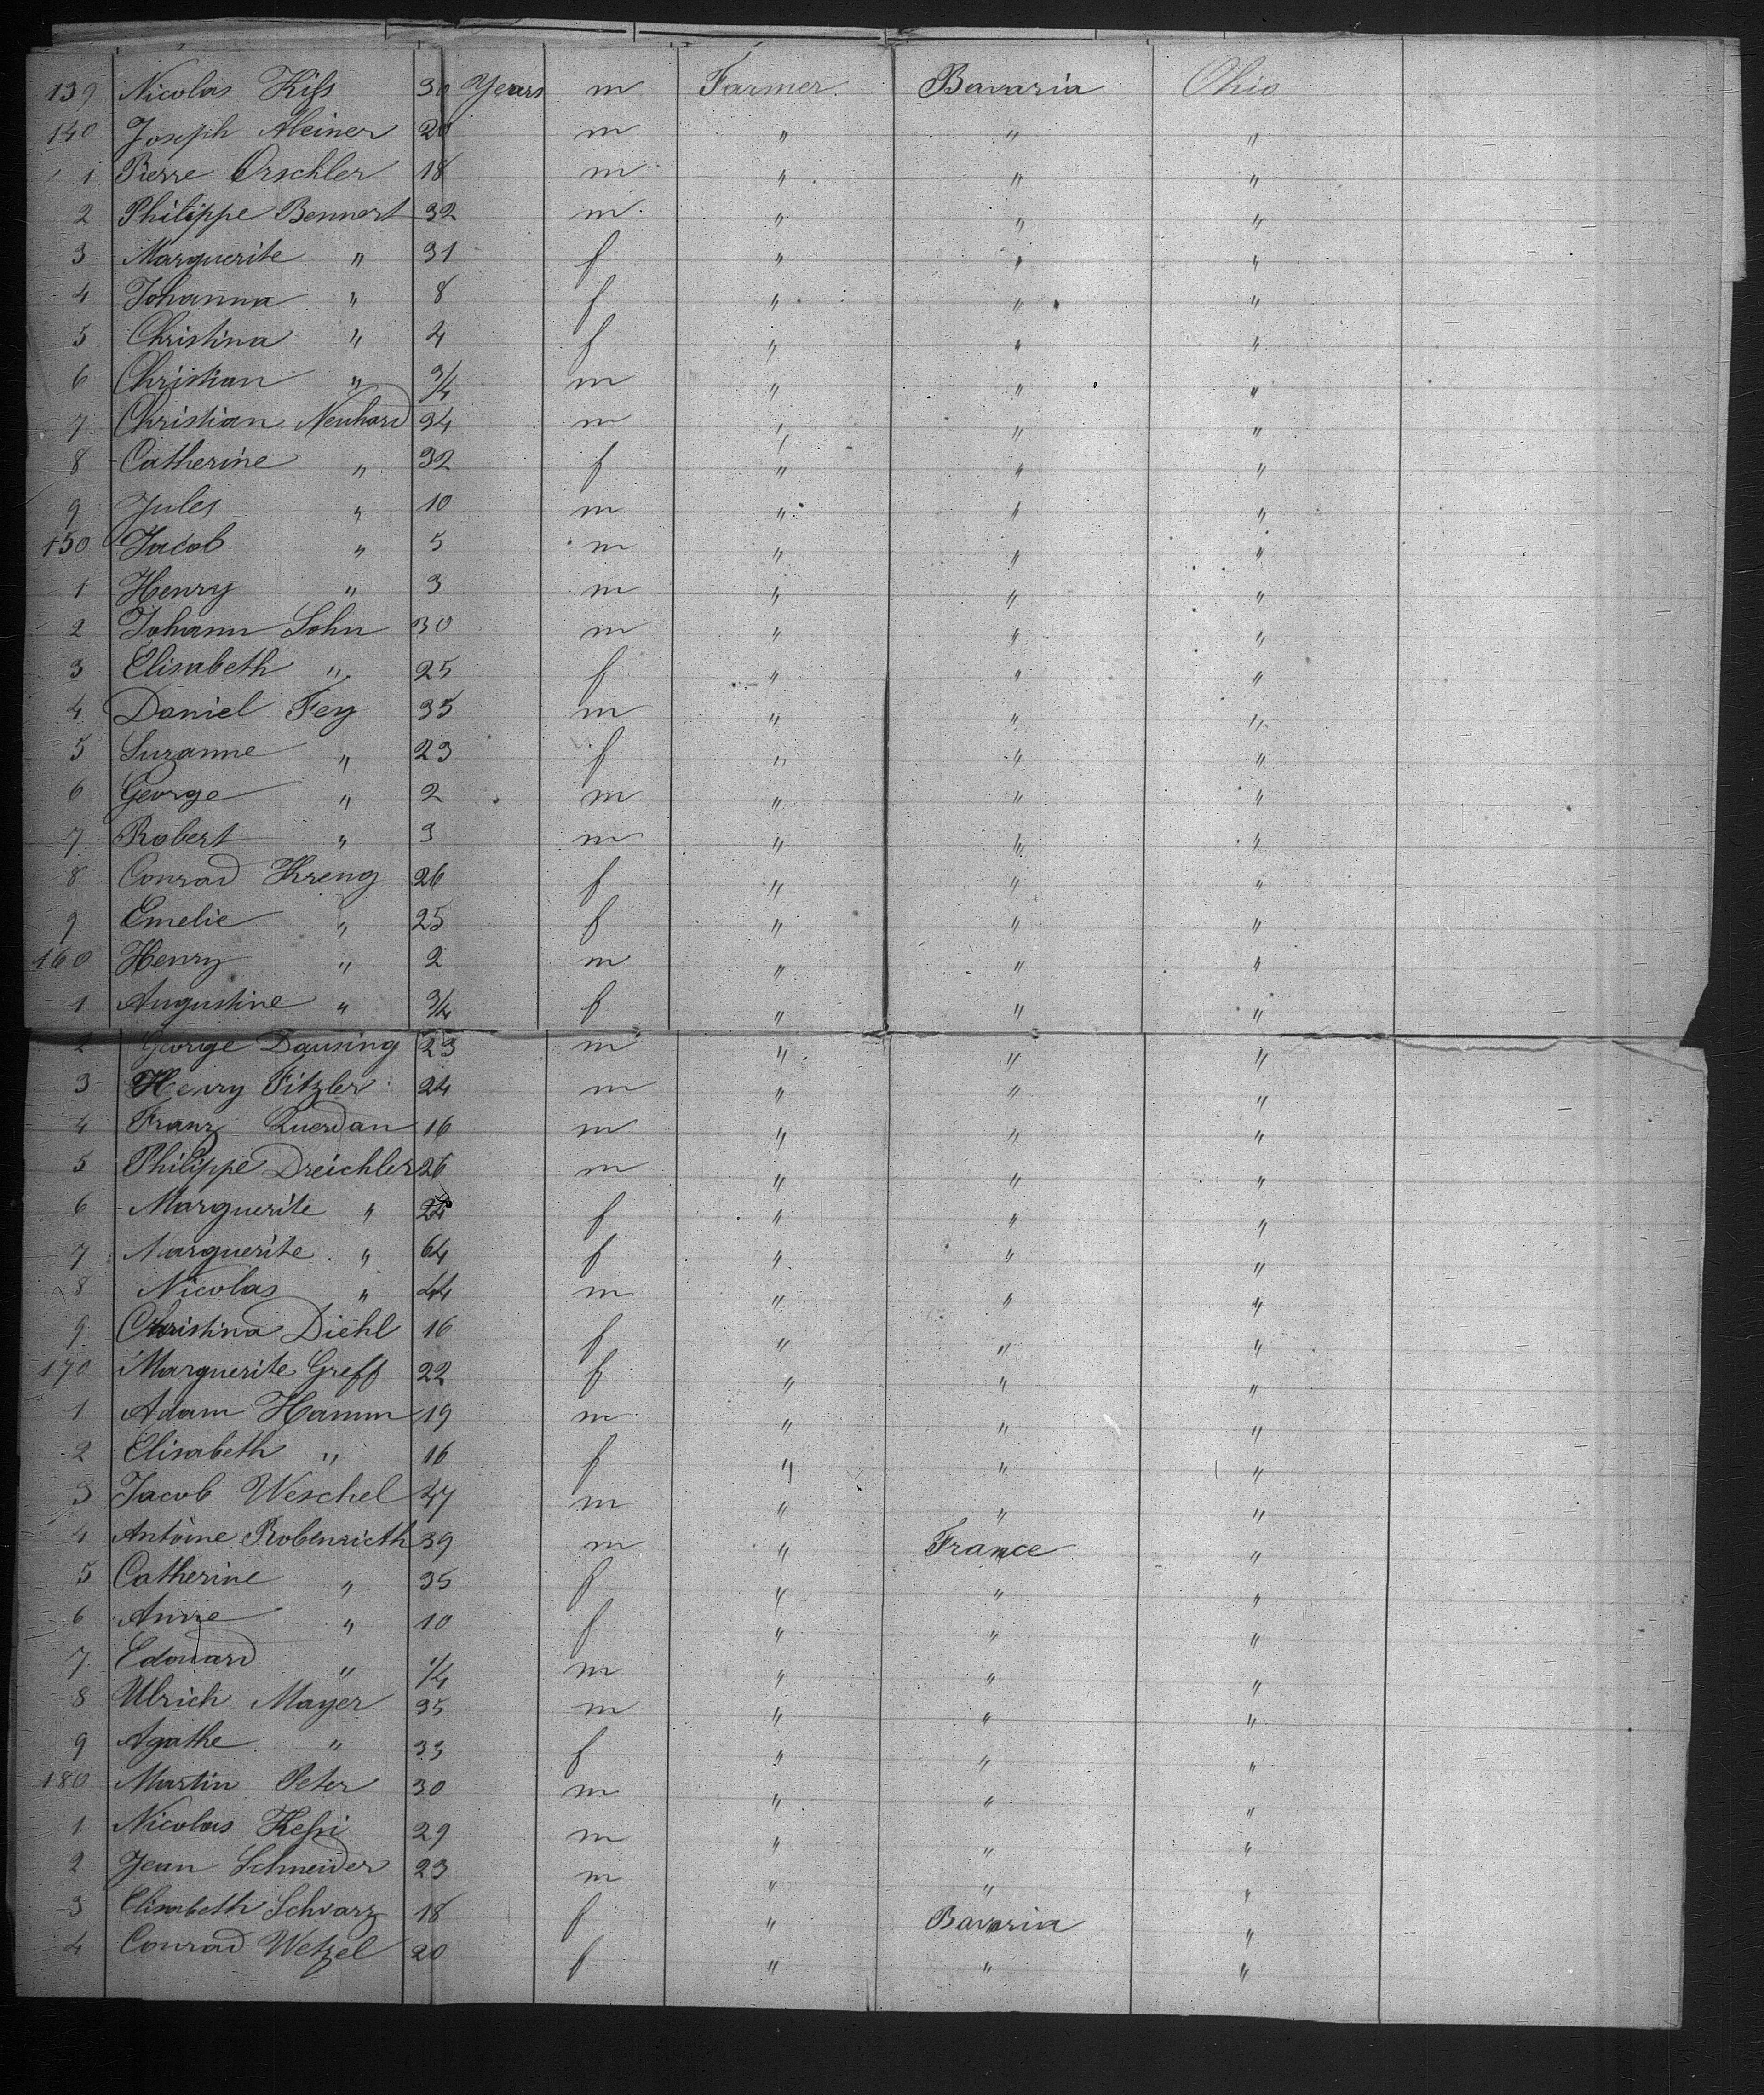 139 Nicolas Kiſs 30 Years m Farmer Bavaria Ohio
140 Joseph Aleiner 20 m " " "
1 Pierre Orschler 18 m " " "
2 Philippe Bennert 32 m " " "
3 Marguerite " 31 f " " "
4 Johanna " 8 f " " "
5 Christina " 4 f " " "
6 Christian " 3/4 m " " "
7 Christian Neuhard 34 m " " "
8 Catherine " 32 f " " "
9 Jules " 10 m " " "
150 Jacob " 5 m " " "
1 Henry " 3 m " " "
2 Johann Sohn 30 m " " "
3 Elisabeth " 25 f " " "
4 Daniel Fey 35 m " " "
5 Suzanne " 23 f " " "
6 George " 2 m " " "
7 Robert " 3 m " " "
8 Conrad Kreng 26 f " " "
9 Emelie " 25 f " " "
160 Henry " 2 m " " "
1 Augustine " 3/4 f " " "
2 George Dausing 23 m " " "
3 Henry Fitzler 24 m " " "
4 Franz Querdan 16 m " " "
5 Philippe Dreichler 26 m " " "
6 Marguerite " f " " "
7 Marguerite " 64 f " " "
8 Nicolas " 44 m " " "
9 Christina Diehl 16 f " " "
170 Marguerite Greff 22 f " " "
1 Adam Hamm 19 m " " "
2 Elisabeth " 16 f " " "
3 Jacob Weschel 47 m " " "
4 Antoine Robenricth 39 m " France "
5 Catherine " 35 f " " "
6 Anne " 10 f " " "
7 Edouard " 1/4 m " " "
8 Ulrich Mayer 35 m " " "
9 Agathe " 33 f " " "
180 Martin Peter 30 m " " "
1 Nicolas Keſsi 29 m " " "
2 Jean Schneider 23 m " " "
3 Elisabeth Schvarz 18 f " Bavaria "
4 Conrad Wetzel 20 f " " "